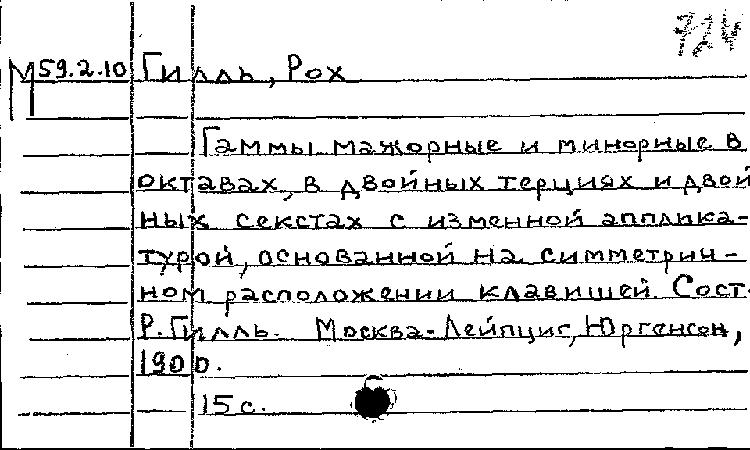 724
М 59.2.10 Гилль, Рох
Гаммы мажорные и минорные в
октавах, в двойных терциях и двой
ных секстах с изменной апплика-
турой, основанной на симметрич-
ном расположении клавишей. Сост.
Р. Гилль. Москва-Лейпциг, Юргенсон,
1900.
15 с.